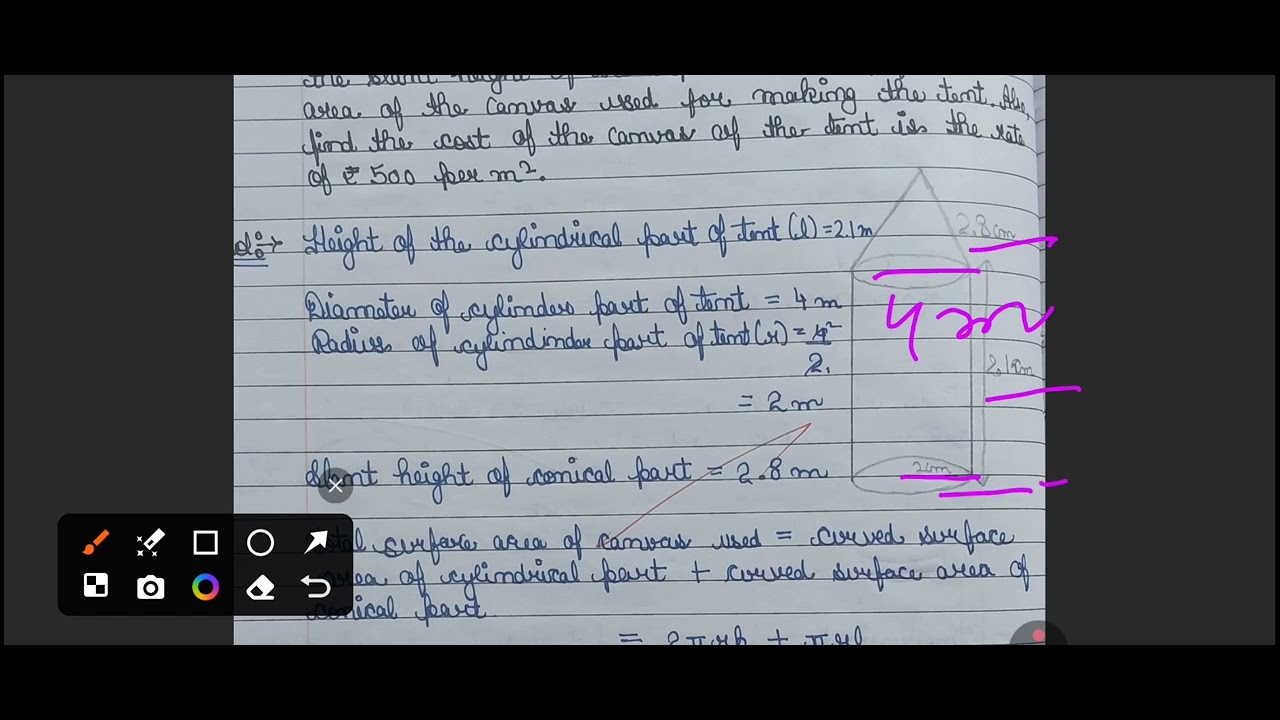 the slant height of
area of the canvas used for making the tent. Also,
find the cost of the canvas of the tent is the rate
of ₹ 500 per m².
Height of the cylindrical part of tent (l) = 2.1 m
2.8cm
Diameter of cylinders part of tent = 4 m
4 m
Radius of cylindindar part of tent (r) = 4²
2.
2.1cm
= 2 m
Slant height of conical part = 2.8 m
2cm
Total surface area of canvas used = curved surface
area of cylindrical part + curved surface area of
conical part
= 2πrh + πrl